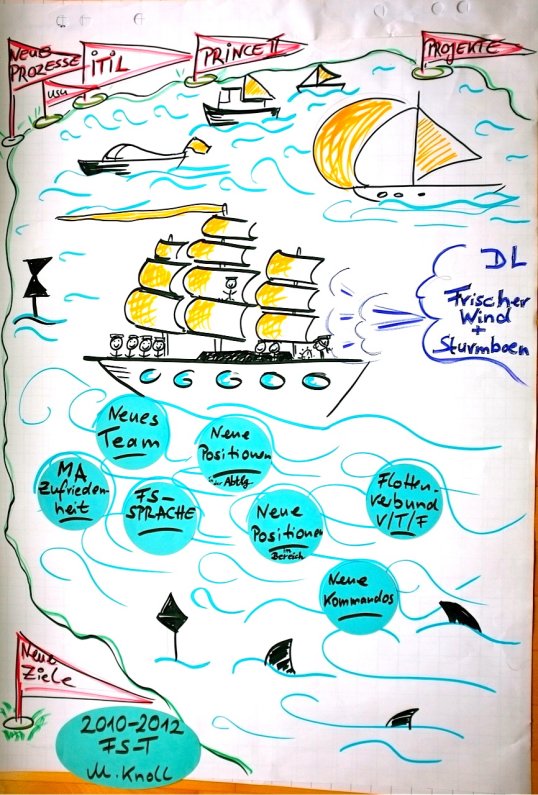 NEUE
PROZESSE
USU
ITIL
PRINCE II
PROJEKTE
DL
Frischer
Wind
+
Sturmböen
Neues
Team
Neue
Positionen
in der Abtlg.
MA
Zufrieden-
heit
FS-
SPRACHE
Neue
Positionen
im
Bereich
Flotten-
verbund
V/T/F
Neue
Kommandos
Neue
Ziele
2010-2012
FS-T
M. Knoll